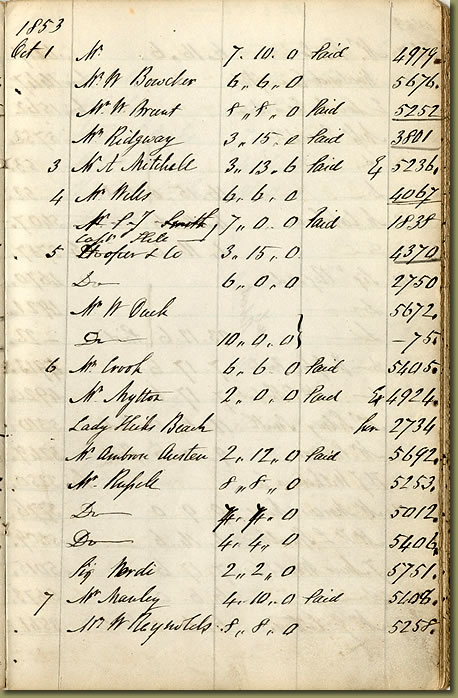 1853
Oct 1 Mr 7.10.0 Paid 4979.
Mr W Bowcher 6.,6.,0 5676.
Mr W Brent 8.,8.,0 Paid 5252
Mr Ridgway 3.,15.,0 Paid 3801
3 Mr A Mitchell 3.,13.,6 Paid Ex 5236.
4 Mr Wells 6.,6.,0 4067
Mr S J Smith 7.,0.,0 Paid 1838
Capt Hele
5 Hooper & Co 3.,15.,0 4370
Do 6.,0.,0 2750
Mr W Duck 5672.
Do 10.,0.,0 -75.
6 Mr Crook 6.,6.,0 Paid 5405.
Mr Mytton 2.,0.,0 Paid Ex 4924.
Lady Hicks Beach 2734
Mr Ambron Austen 2.,12.,0 Paid 5692.
Mr Russell 8.,8.,0 5253.
Do 4.,4.,0 5012.
Do 4.,4.,0 5406.
Sig Verdi 2.,2.,0 5751.
7 Mr Manley 4.,10.,0 Paid 5408.
Mr W Reynolds 8.,8.,0 5258.